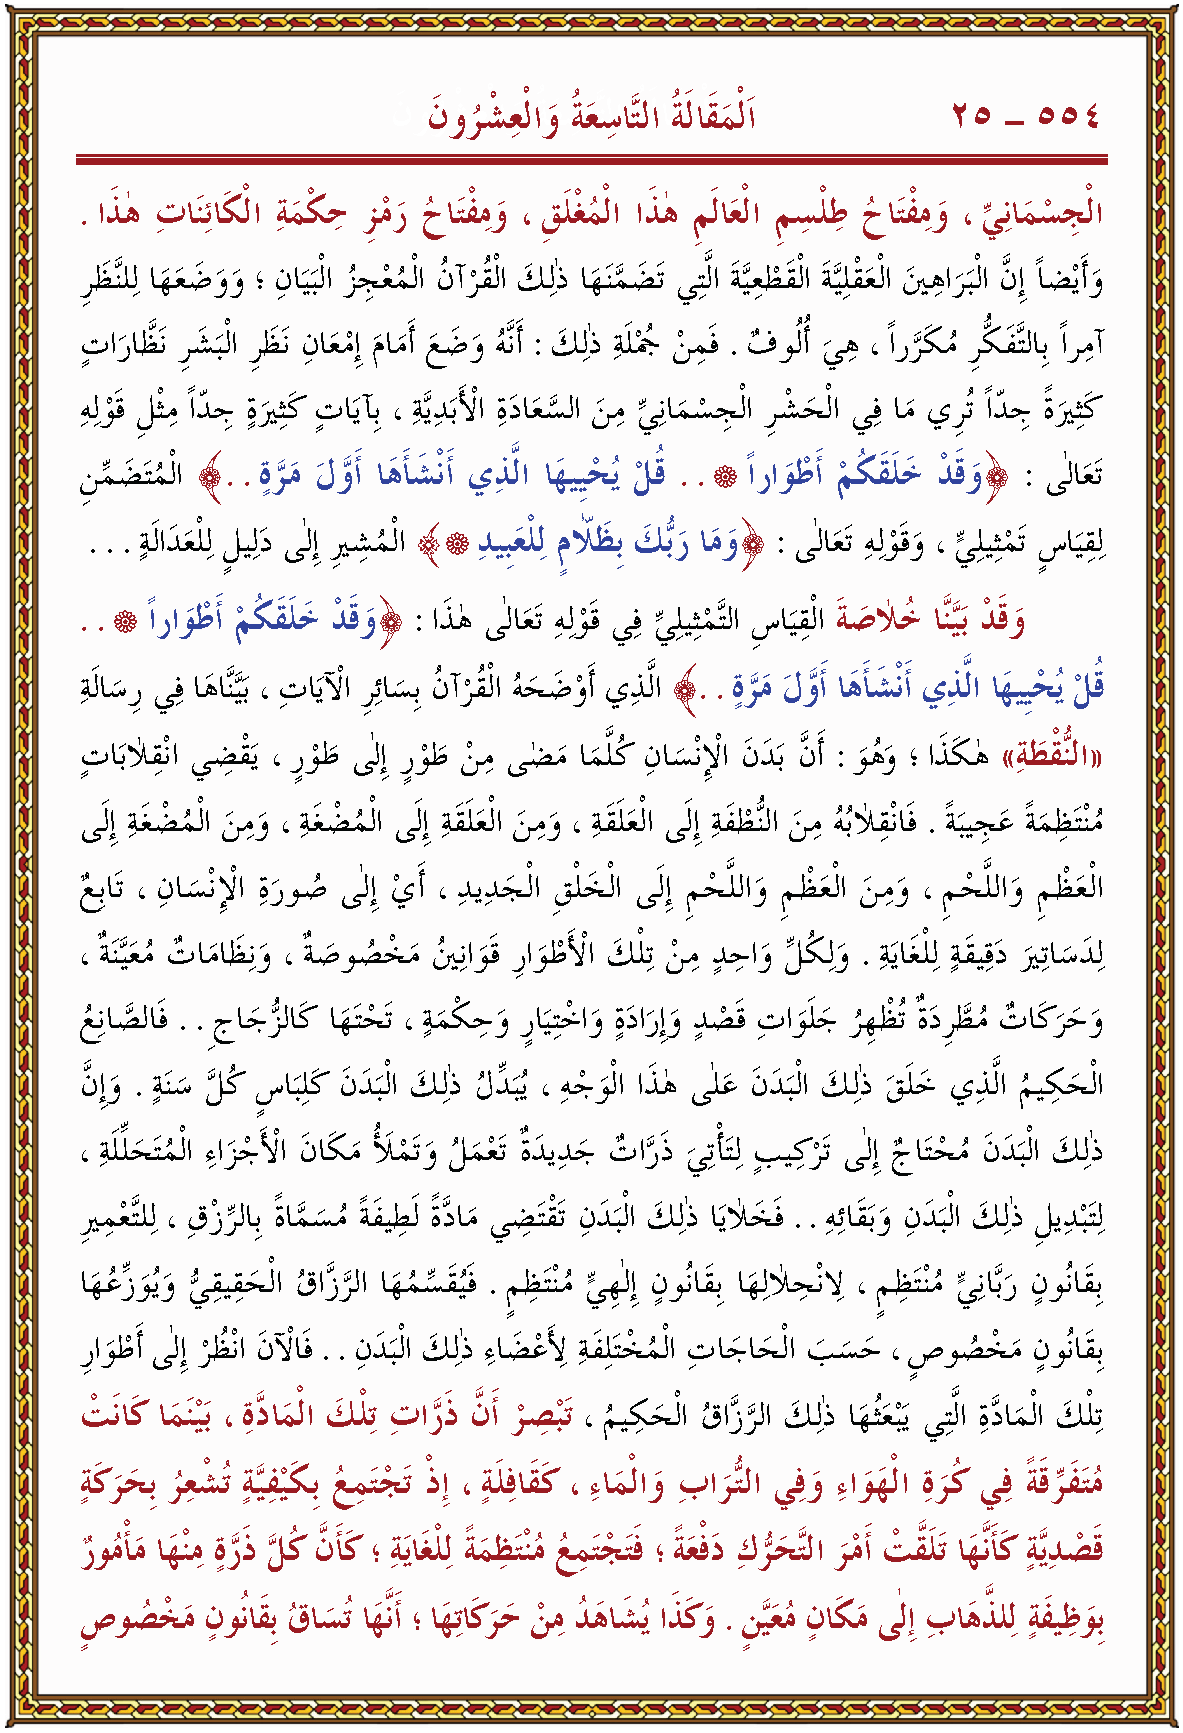 ٥٥٤ – ٢٥ اَلْمَقَالَةُ التَّاسِعَةُ وَالْعِشْرُونَ
الْجِسْمَانِيِّ ، وَمِفْتَاحُ طِلْسِمِ الْعَالَمِ هٰذَا الْمُغْلَقِ ، وَمِفْتَاحُ رَمْزِ حِكْمَةِ الْكَائِنَاتِ هٰذَا .
وَأَيْضاً إِنَّ الْبَرَاهِينَ الْعَقْلِيَّةَ الْقَطْعِيَّةَ الَّتِي تَضَمَّنَهَا ذٰلِكَ الْقُرْآنُ الْمُعْجِزُ الْبَيَانِ ؛ وَوَضَعَهَا لِلنَّظَرِ
آمِراً بِالتَّفَكُّرِ مُكَرَّراً ، هِيَ أُلُوفٌ . فَمِنْ جُمْلَةِ ذٰلِكَ : أَنَّهُ وَضَعَ أَمَامَ إِمْعَانِ نَظَرِ الْبَشَرِ نَظَّارَاتٍ
كَثِيرَةً جِدّاً تُرِي مَا فِي الْحَشْرِ الْجِسْمَانِيِّ مِنَ السَّعَادَةِ الْأَبَدِيَّةِ ، بِآيَاتٍ كَثِيرَةٍ جِدّاً مِثْلِ قَوْلِهِ
تَعَالٰى : ﴿وَقَدْ خَلَقَكُمْ أَطْوَاراً ۞ . . قُلْ يُحْيِيهَا الَّذِي أَنْشَأَهَا أَوَّلَ مَرَّةٍ . .﴾ الْمُتَضَمِّنِ
لِقِيَاسٍ تَمْثِيلِيٍّ ، وَقَوْلِهِ تَعَالٰى : ﴿وَمَا رَبُّكَ بِظَلَّامٍ لِلْعَبِيدِ ۞﴾ الْمُشِيرِ إِلٰى دَلِيلٍ لِلْعَدَالَةِ . . .
وَقَدْ بَيَّنَّا خُلَاصَةَ الْقِيَاسِ التَّمْثِيلِيِّ فِي قَوْلِهِ تَعَالٰى هٰذَا : ﴿وَقَدْ خَلَقَكُمْ أَطْوَاراً ۞ . .
قُلْ يُحْيِيهَا الَّذِي أَنْشَأَهَا أَوَّلَ مَرَّةٍ . .﴾ الَّذِي أَوْضَحَهُ الْقُرْآنُ بِسَائِرِ الْآيَاتِ ، بَيَّنَّاهَا فِي رِسَالَةِ
«النُّقْطَةِ» هٰكَذَا ؛ وَهُوَ : أَنَّ بَدَنَ الْإِنْسَانِ كُلَّمَا مَضٰى مِنْ طَوْرٍ إِلٰى طَوْرٍ ، يَقْضِي انْقِلَابَاتٍ
مُنْتَظِمَةً عَجِيبَةً . فَانْقِلَابُهُ مِنَ النُّطْفَةِ إِلَى الْعَلَقَةِ ، وَمِنَ الْعَلَقَةِ إِلَى الْمُضْغَةِ ، وَمِنَ الْمُضْغَةِ إِلَى
الْعَظْمِ وَاللَّحْمِ ، وَمِنَ الْعَظْمِ وَاللَّحْمِ إِلَى الْخَلْقِ الْجَدِيدِ ، أَيْ إِلٰى صُورَةِ الْإِنْسَانِ ، تَابِعٌ
لِدَسَاتِيرَ دَقِيقَةٍ لِلْغَايَةِ . وَلِكُلِّ وَاحِدٍ مِنْ تِلْكَ الْأَطْوَارِ قَوَانِينُ مَخْصُوصَةٌ ، وَنِظَامَاتٌ مُعَيَّنَةٌ ،
وَحَرَكَاتٌ مُطَّرِدَةٌ تُظْهِرُ جَلَوَاتِ قَصْدٍ وَإِرَادَةٍ وَاخْتِيَارٍ وَحِكْمَةٍ ، تَحْتَهَا كَالزُّجَاجِ . . فَالصَّانِعُ
الْحَكِيمُ الَّذِي خَلَقَ ذٰلِكَ الْبَدَنَ عَلٰى هٰذَا الْوَجْهِ ، يُبَدِّلُ ذٰلِكَ الْبَدَنَ كَلِبَاسٍ كُلَّ سَنَةٍ . وَإِنَّ
ذٰلِكَ الْبَدَنَ مُحْتَاجٌ إِلٰى تَرْكِيبٍ لِتَأْتِيَ ذَرَّاتٌ جَدِيدَةٌ تَعْمَلُ وَتَمْلَأُ مَكَانَ الْأَجْزَاءِ الْمُتَحَلِّلَةِ ،
لِتَبْدِيلِ ذٰلِكَ الْبَدَنِ وَبَقَائِهِ . . فَخَلَايَا ذٰلِكَ الْبَدَنِ تَقْتَضِي مَادَّةً لَطِيفَةً مُسَمَّاةً بِالرِّزْقِ ، لِلتَّعْمِيرِ
بِقَانُونٍ رَبَّانِيٍّ مُنْتَظِمٍ ، لِانْحِلَالِهَا بِقَانُونٍ إِلٰهِيٍّ مُنْتَظِمٍ . فَيُقَسِّمُهَا الرَّزَّاقُ الْحَقِيقِيُّ وَيُوَزِّعُهَا
بِقَانُونٍ مَخْصُوصٍ ، حَسَبَ الْحَاجَاتِ الْمُخْتَلِفَةِ لِأَعْضَاءِ ذٰلِكَ الْبَدَنِ . . فَالْآنَ انْظُرْ إِلٰى أَطْوَارِ
تِلْكَ الْمَادَّةِ الَّتِي يَبْعَثُهَا ذٰلِكَ الرَّزَّاقُ الْحَكِيمُ ، تَبْصِرْ أَنَّ ذَرَّاتِ تِلْكَ الْمَادَّةِ ، بَيْنَمَا كَانَتْ
مُتَفَرِّقَةً فِي كُرَةِ الْهَوَاءِ وَفِي التُّرَابِ وَالْمَاءِ ، كَقَافِلَةٍ ، إِذْ تَجْتَمِعُ بِكَيْفِيَّةٍ تُشْعِرُ بِحَرَكَةٍ
قَصْدِيَّةٍ كَأَنَّهَا تَلَقَّتْ أَمْرَ التَّحَرُّكِ دَفْعَةً ؛ فَتَجْتَمِعُ مُنْتَظِمَةً لِلْغَايَةِ ؛ كَأَنَّ كُلَّ ذَرَّةٍ مِنْهَا مَأْمُورٌ
بِوَظِيفَةٍ لِلذَّهَابِ إِلٰى مَكَانٍ مُعَيَّنٍ . وَكَذَا يُشَاهَدُ مِنْ حَرَكَاتِهَا ؛ أَنَّهَا تُسَاقُ بِقَانُونٍ مَخْصُوصٍ